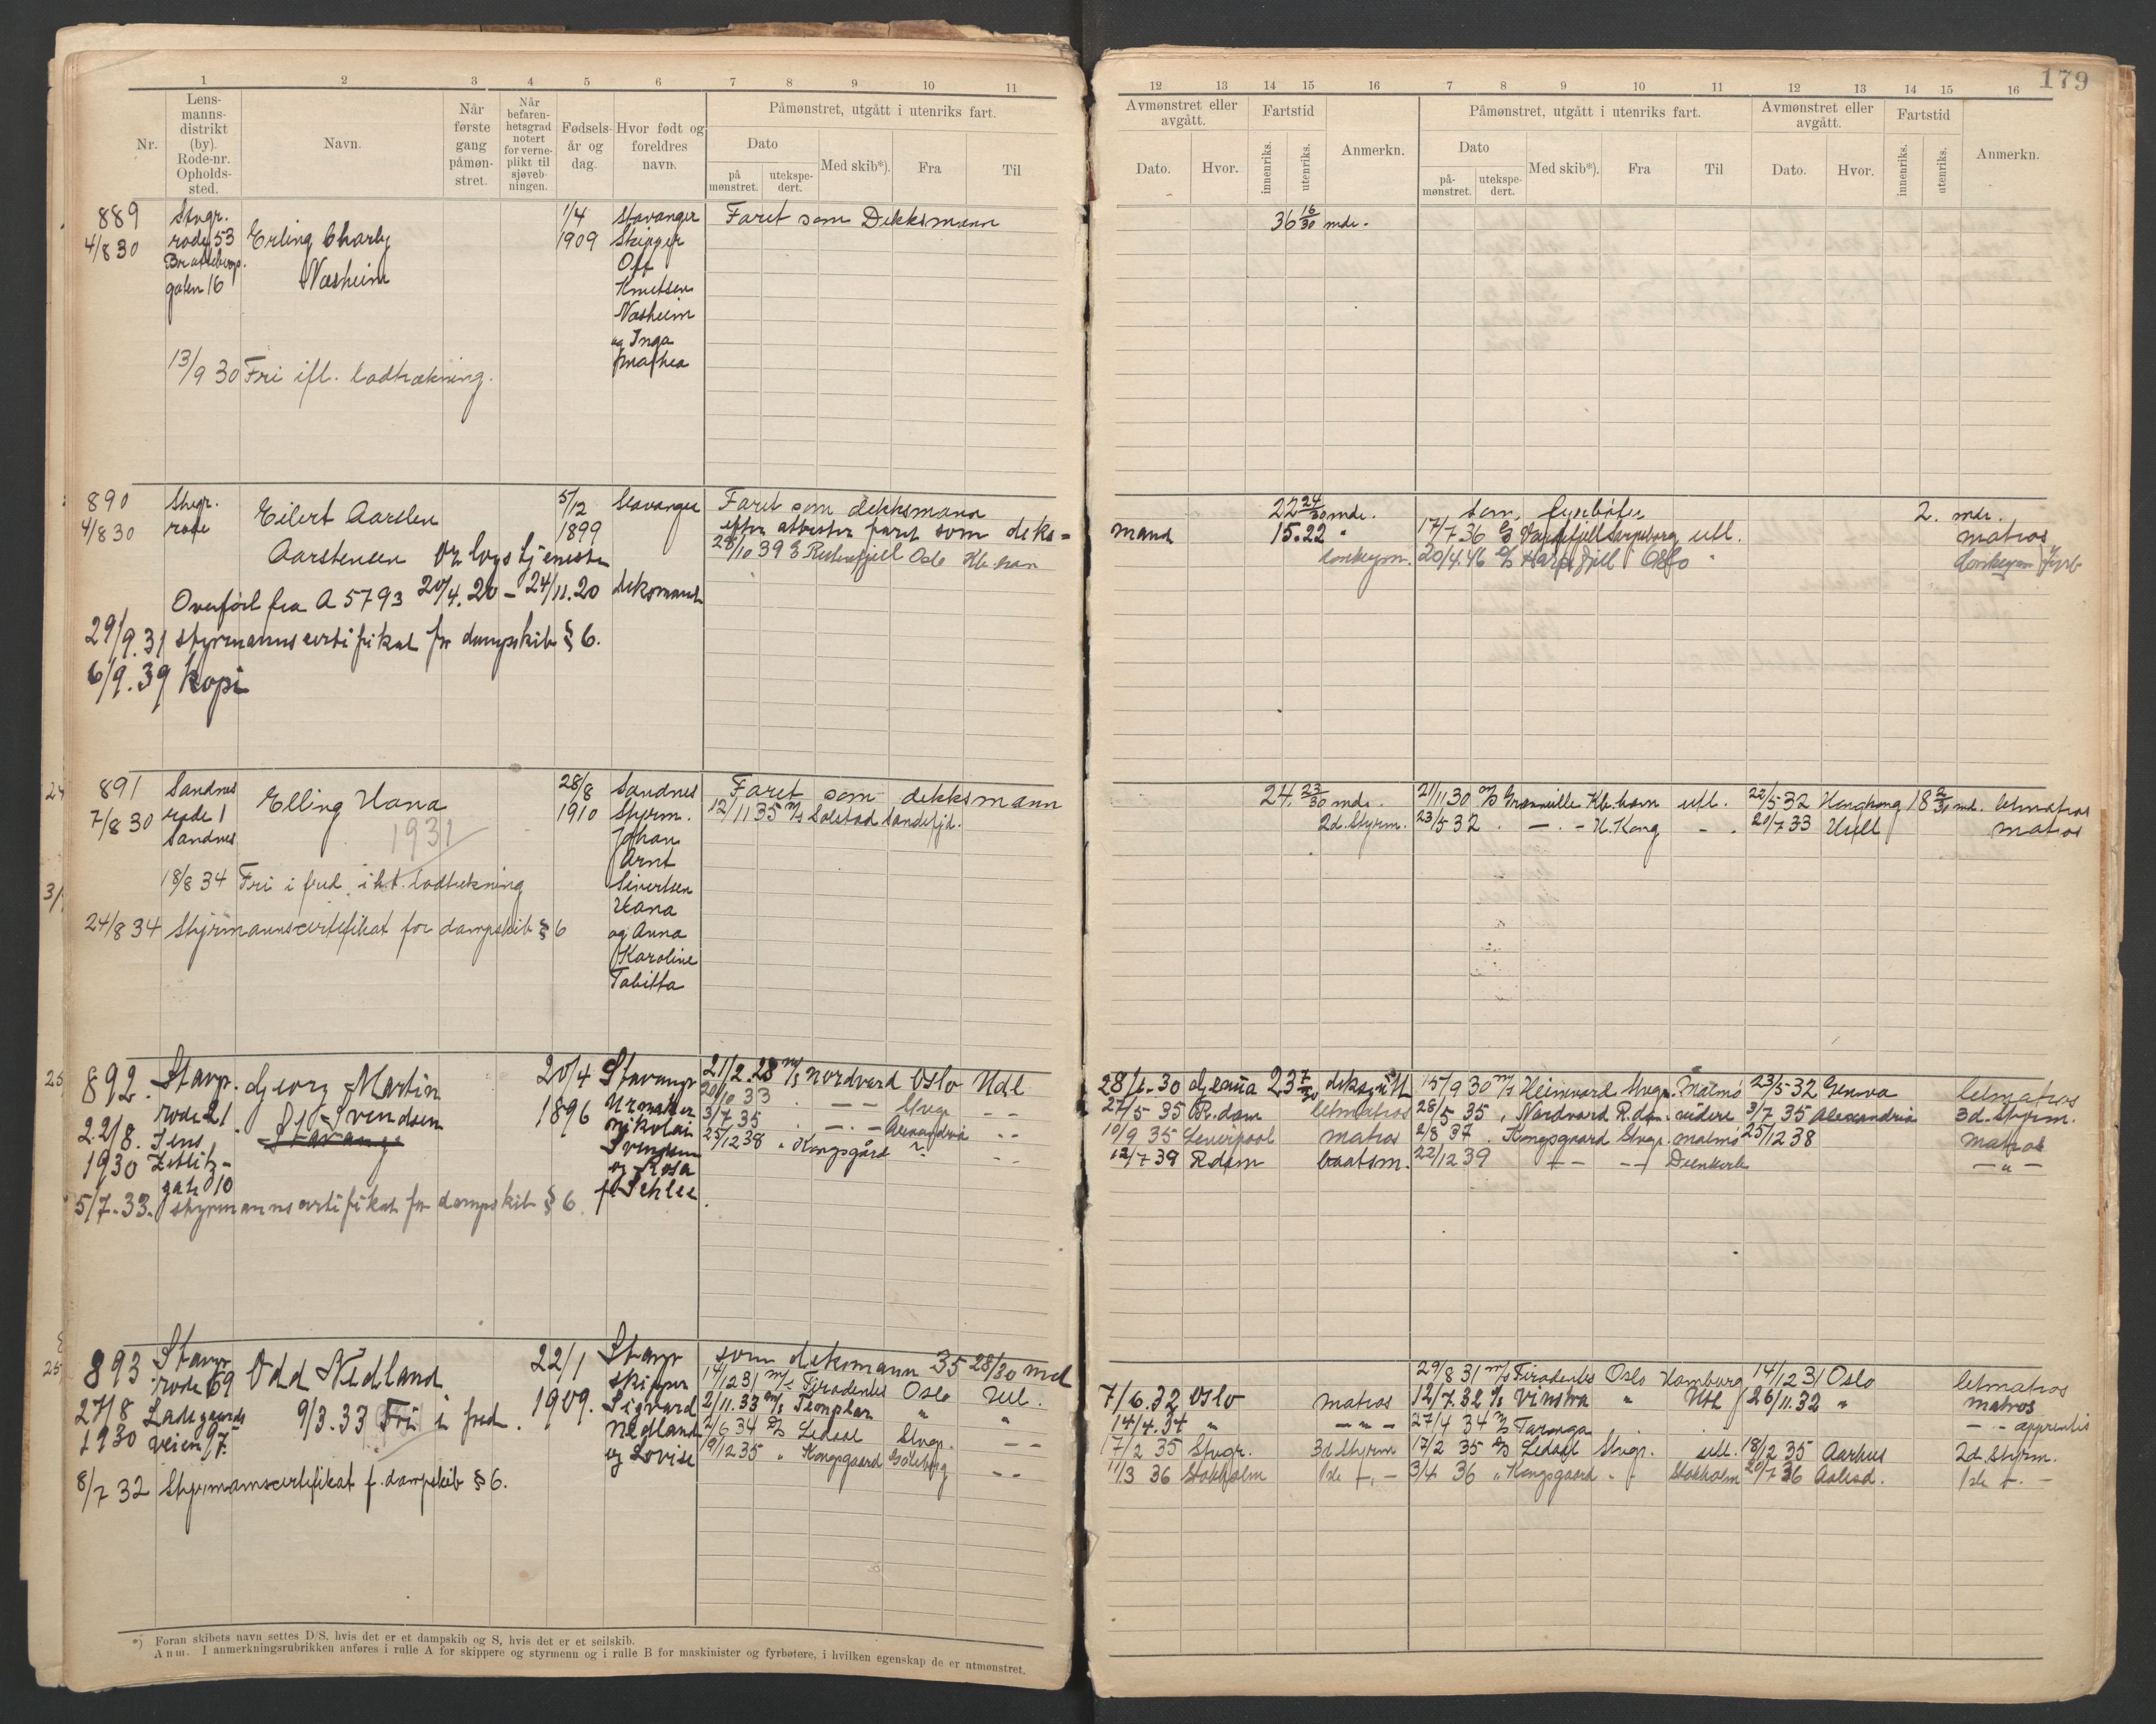 179
1 2 3 4 5 6 7 8 9 10 11
Nr.
Lens-
manns-
distrikt
(by).
Rode-nr.
Opholds-
sted.
Navn.
Når
første
gang
påmøn-
stret.
Når
befaren-
hetsgrad
notert
for verne-
plikt til
sjøveb-
ningen.
Fødsels-
år og
dag.
Hvor født og
foreldres
navn.
Påmønstret, utgått i utenriks fart.
Dato
på
mønstret.
utekspe-
dert.
Med skib*).
Fra
Til
12 13 14 15 16 7 8 9 10 11 12 13 14 15 16
Avmønstret eller
avgått.
Dato.
Hvor.
Fartstid
innenriks.
utenriks.
Anmerkn.
Påmønstret, utgått i utenriks fart.
Dato
på-
mønstret.
utekspe-
dert.
Med skib*).
Fra
Til
Avmønstret eller
avgått.
Dato.
Hvor.
Fartstid
innenriks.
utenriks.
Anmerkn.
889
4/8 30
Stvgr.
rode 53
galen 16
Erling Charly
Næsheim
1/4
1909
Stavanger
Skipper
Knutsen
Næsheim
og Inga
Mathea
Faret som Dekksmann
36 16/30 mdr.
13/9 30 Fri ifl. lodtrækning.
890
4/8 30
Stvgr.
rode
Eilert Aarslen
Aarstensen
5/12
1899
Stavanger
Faret som dekksmann
efter attester faret som deks=
mand
28/10 39 Oslo Kb.havn
22 24/30 mdr.
15.22 "
som fyrbøter
2. mdr.
17/7.36 Sarpsborg utl.
matros
20/4.46 Oslo "
Overført fra A 5793 20/4.20 - 24/11.20 deksmand
29/9.31 styrmannscertifikat for dampskib § 6.
6/9.39 Kopi
891
7/8 30
Sandnes
rode 1
Sandnes
Elling Hana
1931
28/8
1910
Sandnes
Styrm.
Johan
Arnt
Sivertsen
Hana
og Anna
Karoline
Tabitta
Faret som dekksmann
12/11 35 m/s Solstad Sandefjd.
24. 23/30 mdr.
2d. Styrm.
21/11 30 Granville Kb.havn utl. 22/5 32 Hongkong 18 2/30 md. letmatros
23/5 32 - H. Kong - 20/7 33 Hull matros
18/8 34 Fri i fred i h.t. lodtrekning
24/8 34 Styrmannscertifikat for dampskib § 6
892.
22/8.
1930
Stavgr.
rode 21.
Jens
Zetlitz-
gate 10
Georg Martin
Svendsen
20/4
1896
Stavangr
Urmaker
Nikolai
Svendsen
og Rosa
f. Schlee
21/2.28 m/s Nordvard Oslo Utl
20/10 33 - Stvgr - -
3/7 35 - Alexandria - -
25/12 38 " Kongsgård - -
28/6.30 23 7/30
27/5 35 R.dam letmatros
10/9 35 Liverpool matros
12/7 39 R.dam baatsm.
15/9 30 m/s Heimvard Stvgr. Malmö 23/5 32 Genova letmatros
28/5 35 " Nordvard R.dam videre 3/7 35 Alexandria 3d. styrm.
2/8 37 . Kongsgaard Stvgr. Malmö 25/12 38 matros
22/12 39 - - - - Dunkerk - " -
5/7-33. styrmannscertifikat for dampskib § 6.
893
27/8
1930
Stavgr
rode 69
Ladegaards
veien 7.
Odd Nedland
9/3.33 Fri i fred.
22/1
1909.
Stavgr
skipper
Sigvard
Nedland
og Lovise
som deksmann 35 28/30 md
14/12 31 m/s Tiradentes Oslo Utl.
2/11.33 m/s Templar " "
2/6 34 Ledaal Stvgr. - -
19/12 35 " Kongsgaard Göteborg - -
7/6.32 Oslo matros
14/4.34 " - " -
17/2 35 Stvgr. 3d. Styrm
11/3 36 Stokholm 1ste - " -
29/8 31 m/s Tiradentes Oslo Hamburg 14/12 31 Oslo letmatros
12/7.32 Vinstra " Utl 26/11.32 " matros
27/4 34 m/s Taronga - " - apprentis
17/2 35 Ledaal Stvgr. utl. 18/12 35 Aarhus 2d. Styrm.
3/4 36 " Kongsgaard - " - Stokholm 20/7 36 1ste - " -
8/7 32 Styrmannscertifikat f. dampskib § 6.
*) Foran skibets navn settes D/S, hvis det er et dampskib og S, hvis det er et seilskib.
Anm. I anmerkningsrubrikken anføres i rulle A for skippere og styrmenn og i rulle B for maskinister og fyrbøtere, i hvilken egenskap de er utmønstret.